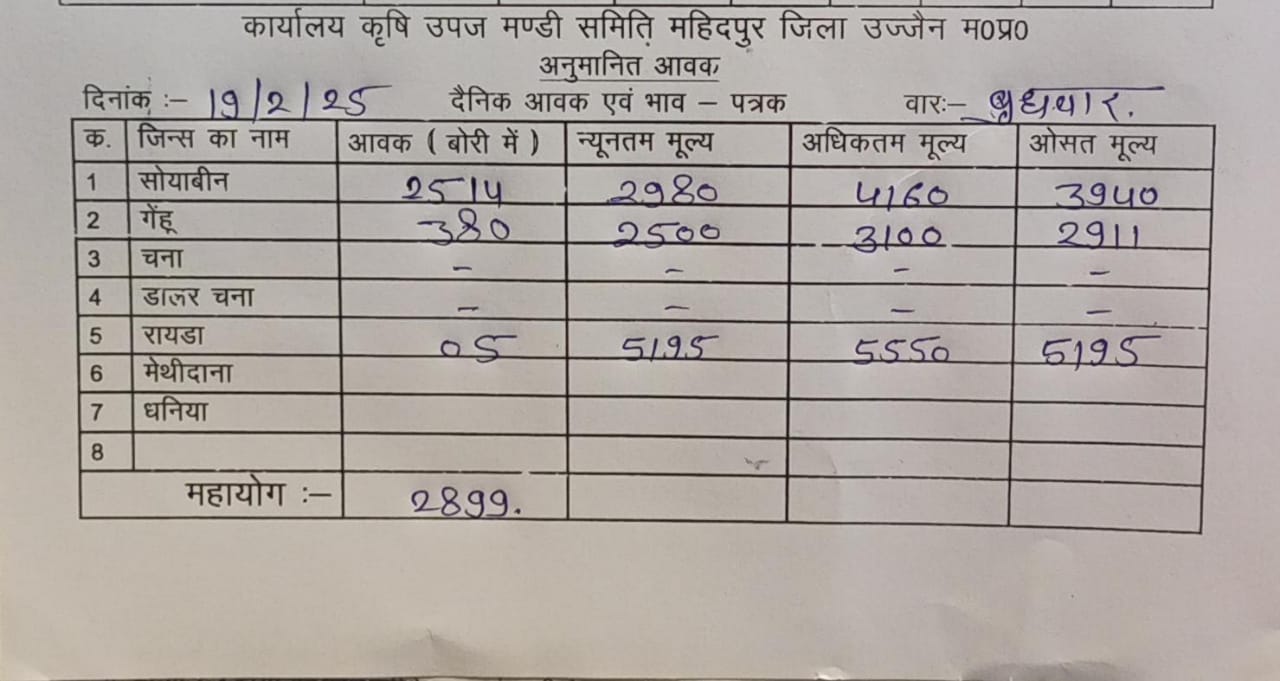 कार्यालय कृषि उपज मण्डी समिति महिदपुर जिला उज्जैन म०प्र०
अनुमानित आवक
दिनांक :- 19/2/25 दैनिक आवक एवं भाव – पत्रक वारः- बुधवार.
क. जिन्स का नाम आवक ( बोरी में ) न्यूनतम मूल्य अधिकतम मूल्य ओसत मूल्य
1 सोयाबीन 2514 2980 4160 3940
2 गेंहू 380 2500 3100 2911
3 चना - - - -
4 डालर चना - - - -
5 रायडा 05 5195 5550 5195
6 मेथीदाना
7 धनिया
8
महायोग :- 2899.